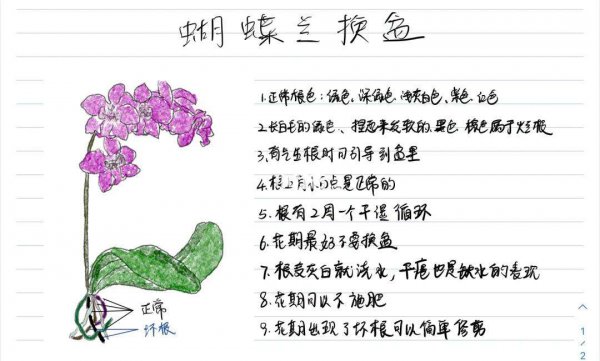 蝴蝶兰换盆
1.正常根色：绿色、深绿色、浅灰白色、紫色、白色
2.长白毛的绿色、捏起来发软的、黑色、棕色属于烂根
3.有气生根时可引导到盆里
4.根上有小白点是正常的
5.根有2周一个干湿循环
6.花期最好不要换盆
7.根变灰白就浇水，干瘪也是缺水的表现
8.花期可以不施肥
9.花期出现了坏根可以简单修剪
正常
坏根
1
/
2